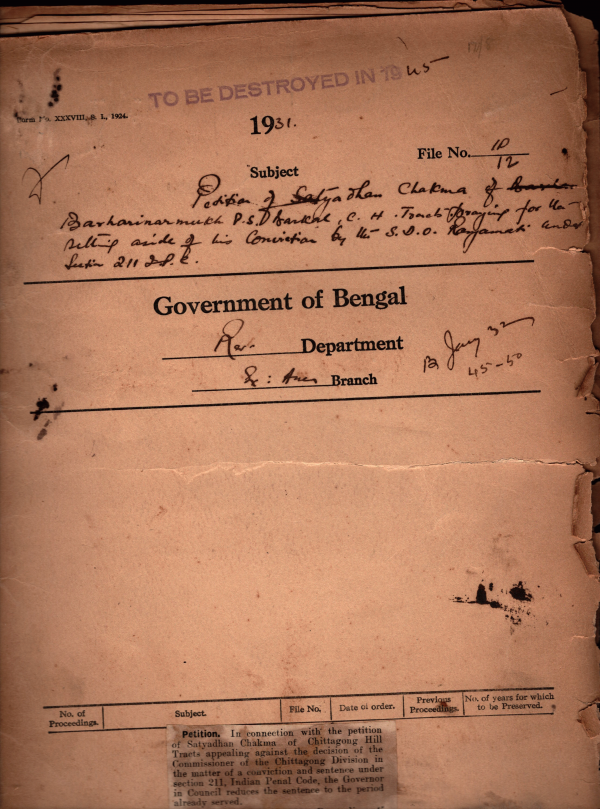 TO BE DESTROYED IN 1945
Form No. XXXVIII, B. I., 1924.
1931.
File No. 1P/12
Subject
Petition of Satyadhan Chakma of
Barharinarmukh P.S. Barkal, C. H. Tracts praying for the
setting aside of his Conviction by the S.D.O. Rangamati under
Section 211 I.P.C.
Government of Bengal
Rev. Department
Ex: Area Branch
B Jany 32
45-50
No. of Proceedings. Subject. File No. Date of order. Previous Proceedings. No. of years for which to be Preserved.
Petition. In connection with the petition
of Satyadhan Chakma of Chittagong Hill
Tracts appealing against the decision of the
Commissioner of the Chittagong Division in
the matter of a conviction and sentence under
section 211, Indian Penal Code, the Governor
in Council reduces the sentence to the period
already served.